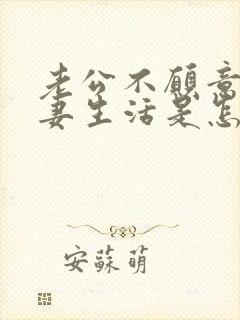 老公不愿意
妻生活是怎
安蘇萌